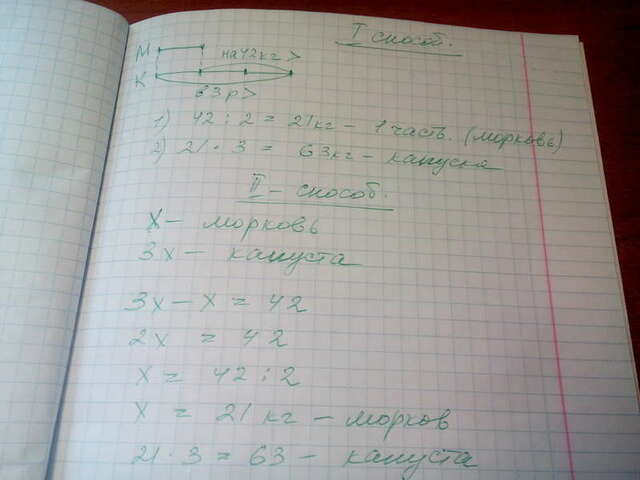 I способ.
М
на 42 кг >
К
в 3 р >
1) 42 : 2 = 21 кг – 1 часть. (морковь)
2) 21 · 3 = 63 кг – капуста
II – способ.
х – морковь
3х – капуста
3х – х = 42
2х = 42
х = 42 : 2
х = 21 кг – морков
21 · 3 = 63 – капуста